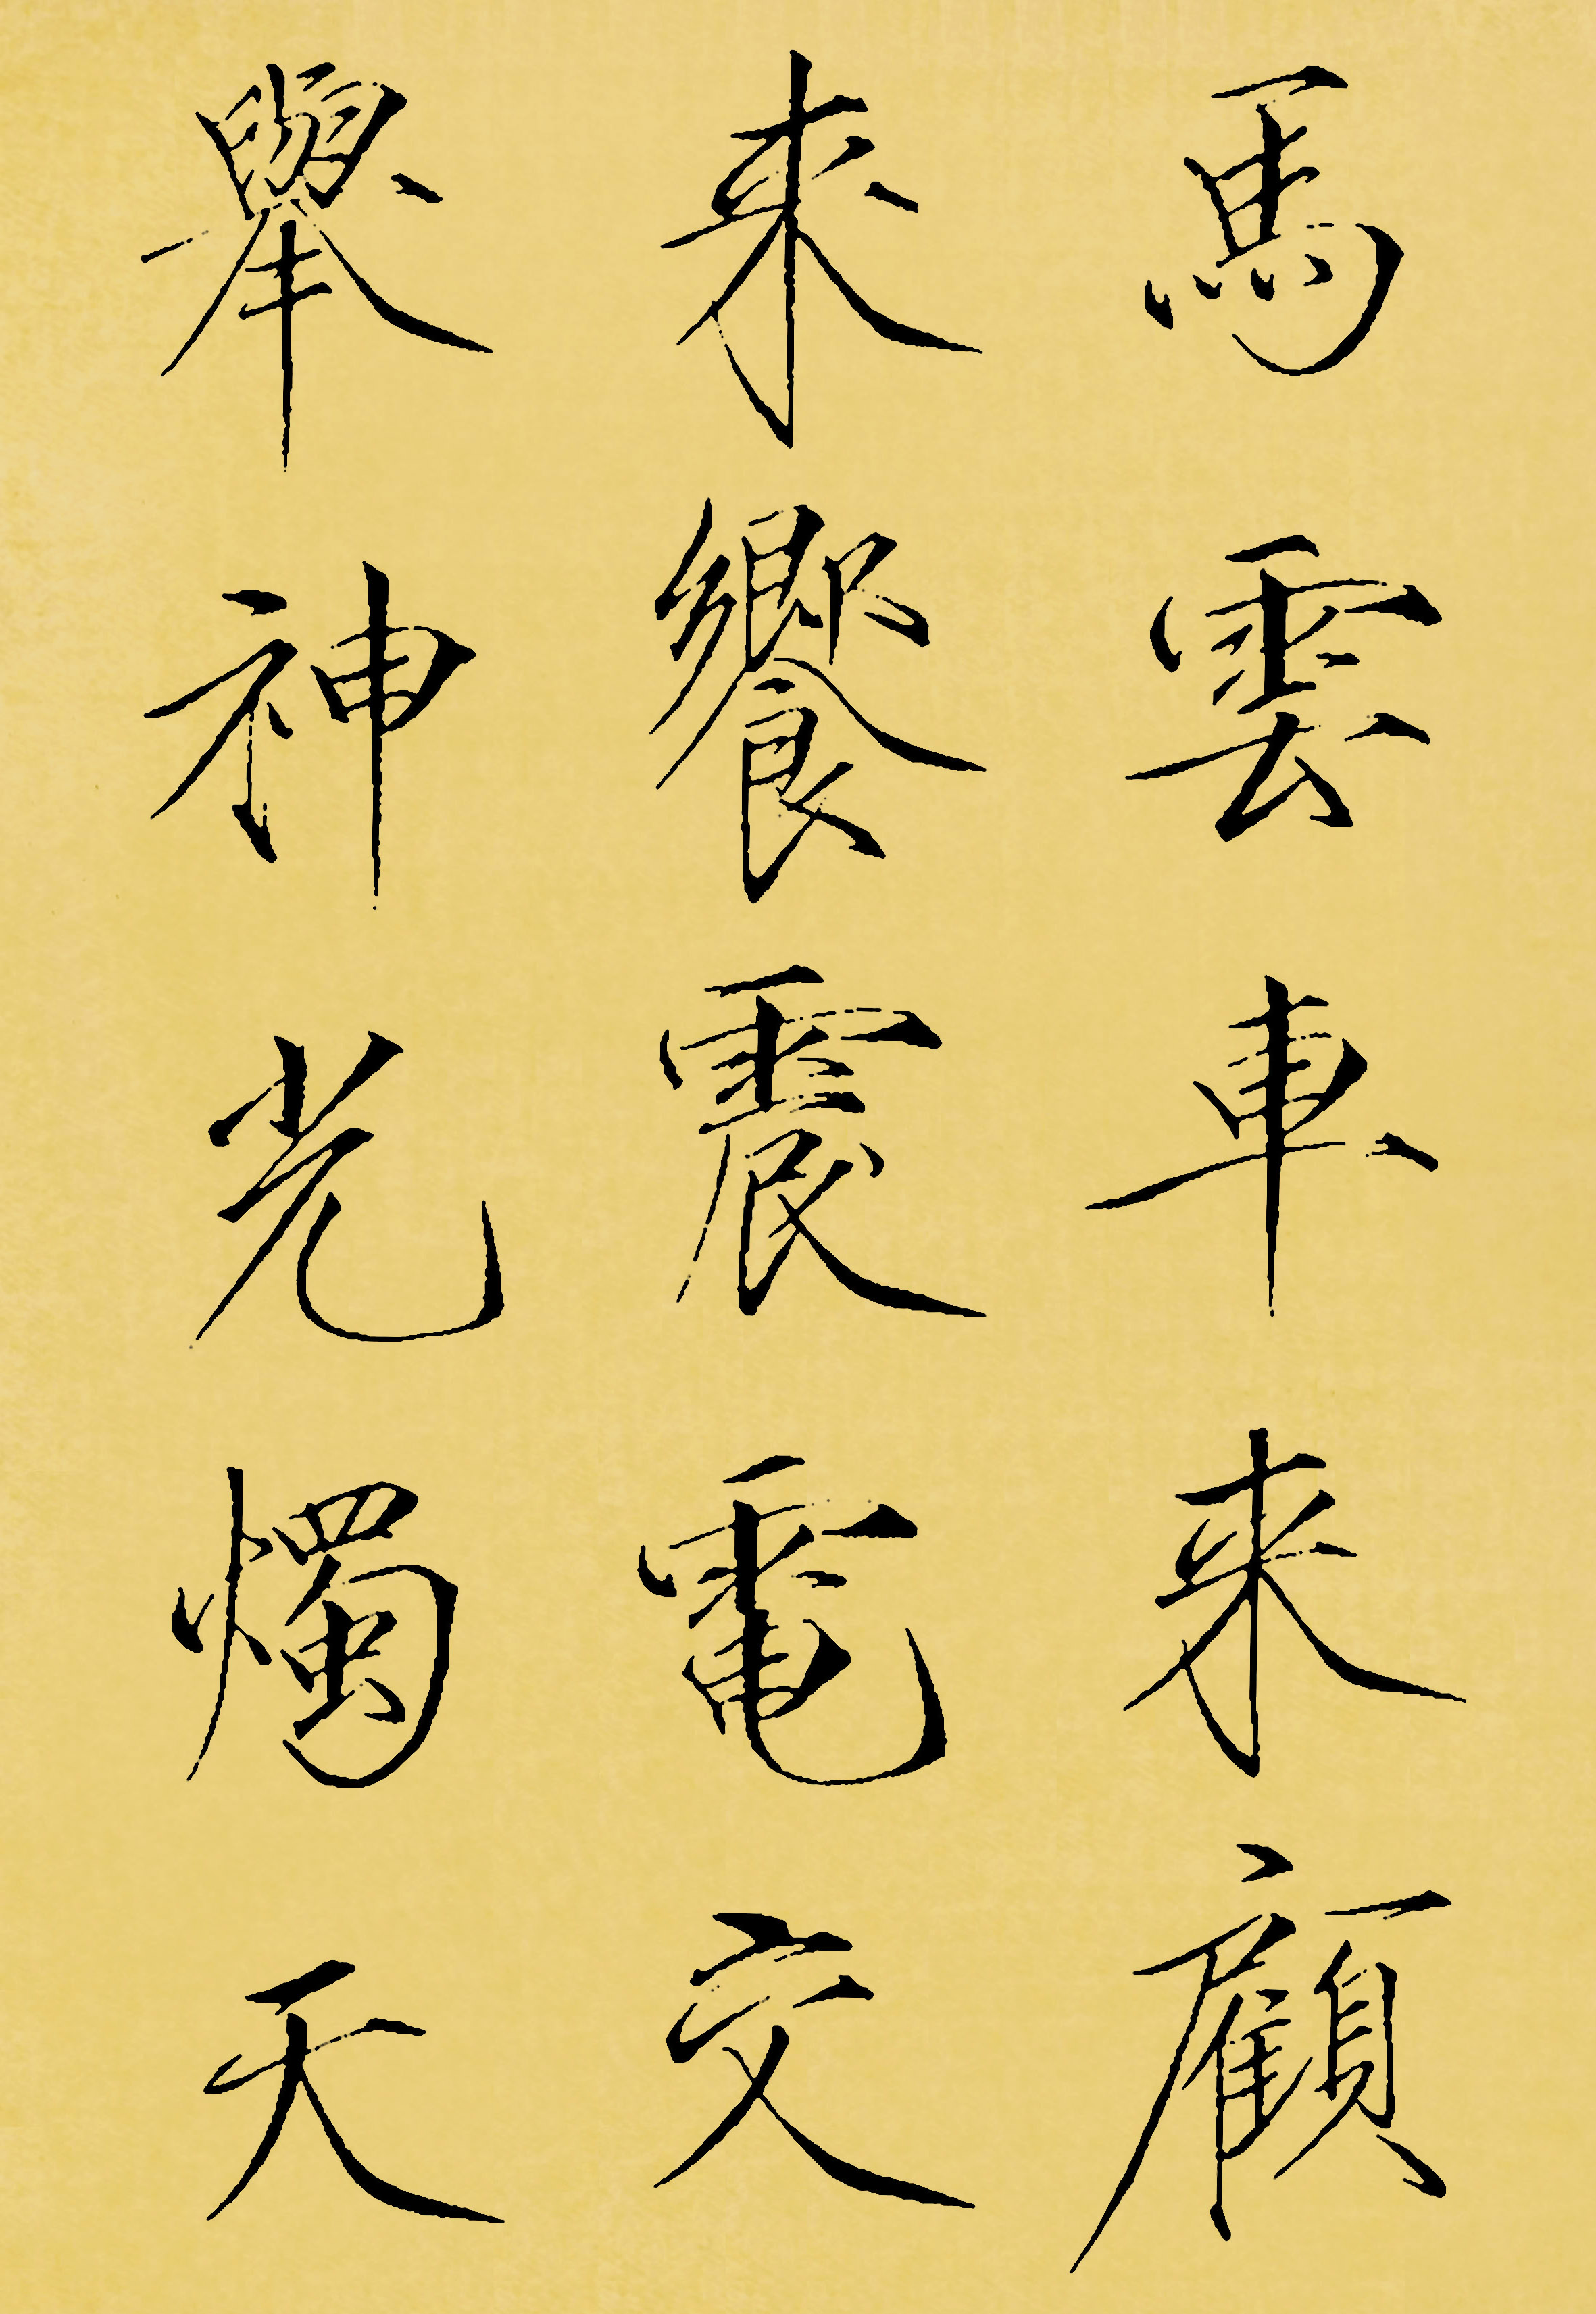 馬雲車来顧
来饗震電交
舉神光燭天